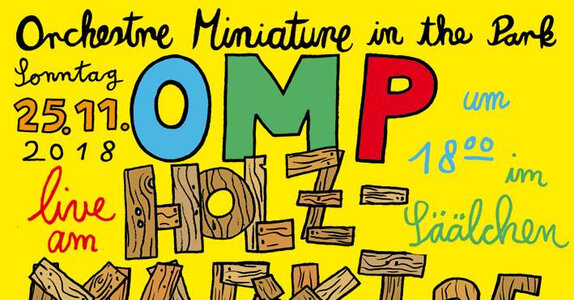 Orchestre Miniature in the Park
Sonntag
25.11.
2018
OMP
um
18⁰⁰ im
Säälchen
live
am
HOLZ-
MARKT